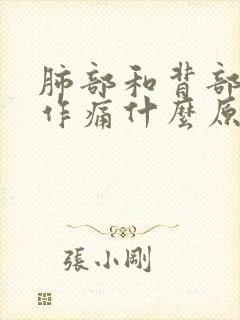 肺部和背部
作痛什麼原
張小剛